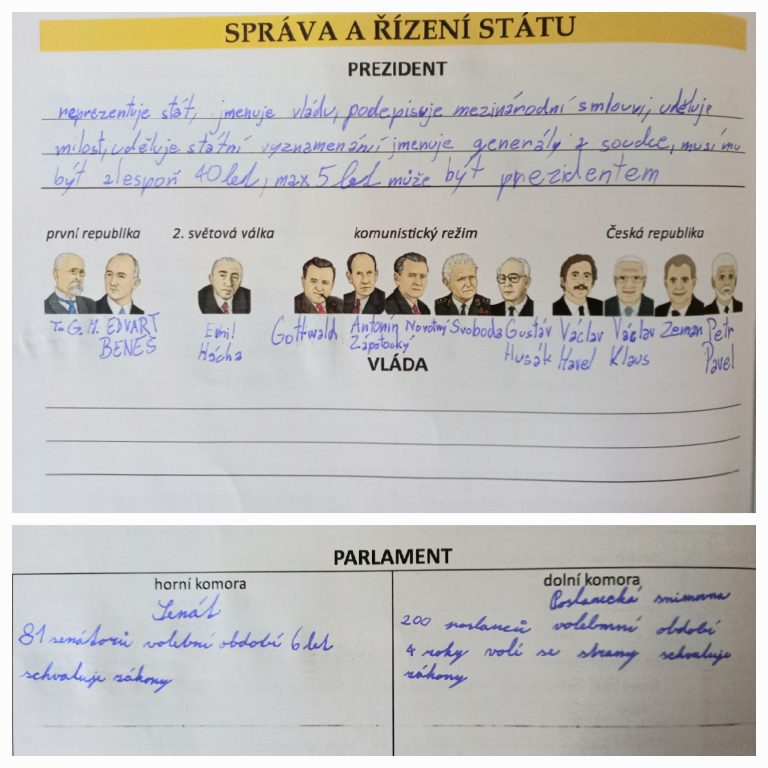 SPRÁVA A ŘÍZENÍ STÁTU
PREZIDENT
reprezentuje stát, jmenuje vládu, podepisuje mezinárodní smlouvy, uděluje
milost, uděluje státní vyznamenání jmenuje generály a soudce, musí mu
být alespoň 40 led, max 5 led může být prezidentem
první republika 2. světová válka komunistický režim Česká republika
T. G. M. EDVART BENEŠ Emil Hácha Gottwald Antonín Zápotocký Novotný Svoboda Gustáv Husák Václav Havel Václav Klaus Zeman Petr Pavel
VLÁDA
PARLAMENT
horní komora
Senát
81 senátorů, volební období 6 let
schvaluje zákony
dolní komora
Poslanecká snimovna
200 poslanců volebnní období
4 roky volí se strany schvaluje
zákony